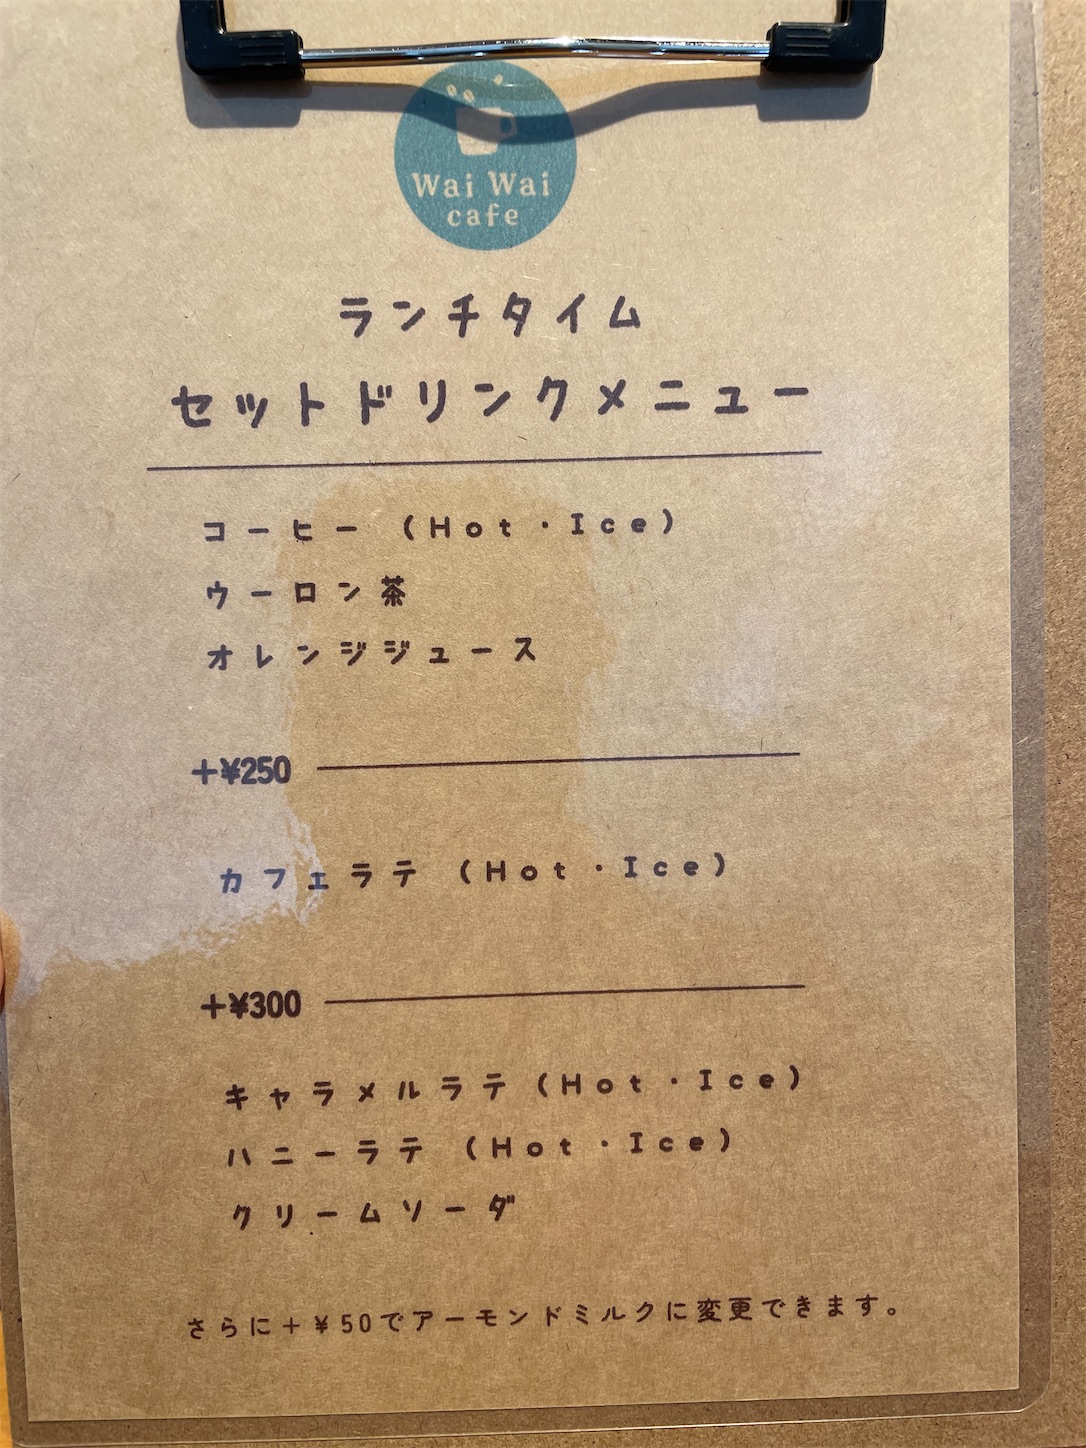 Wai Wai
cafe
ランチタイム
セットドリンクメニュー
コーヒー (Hot・Ice)
ウーロン茶
オレンジジュース
+¥250
カフェラテ (Hot・Ice)
+¥300
キャラメルラテ (Hot・Ice)
ハニーラテ (Hot・Ice)
クリームソーダ
さらに+¥50でアーモンドミルクに変更できます。